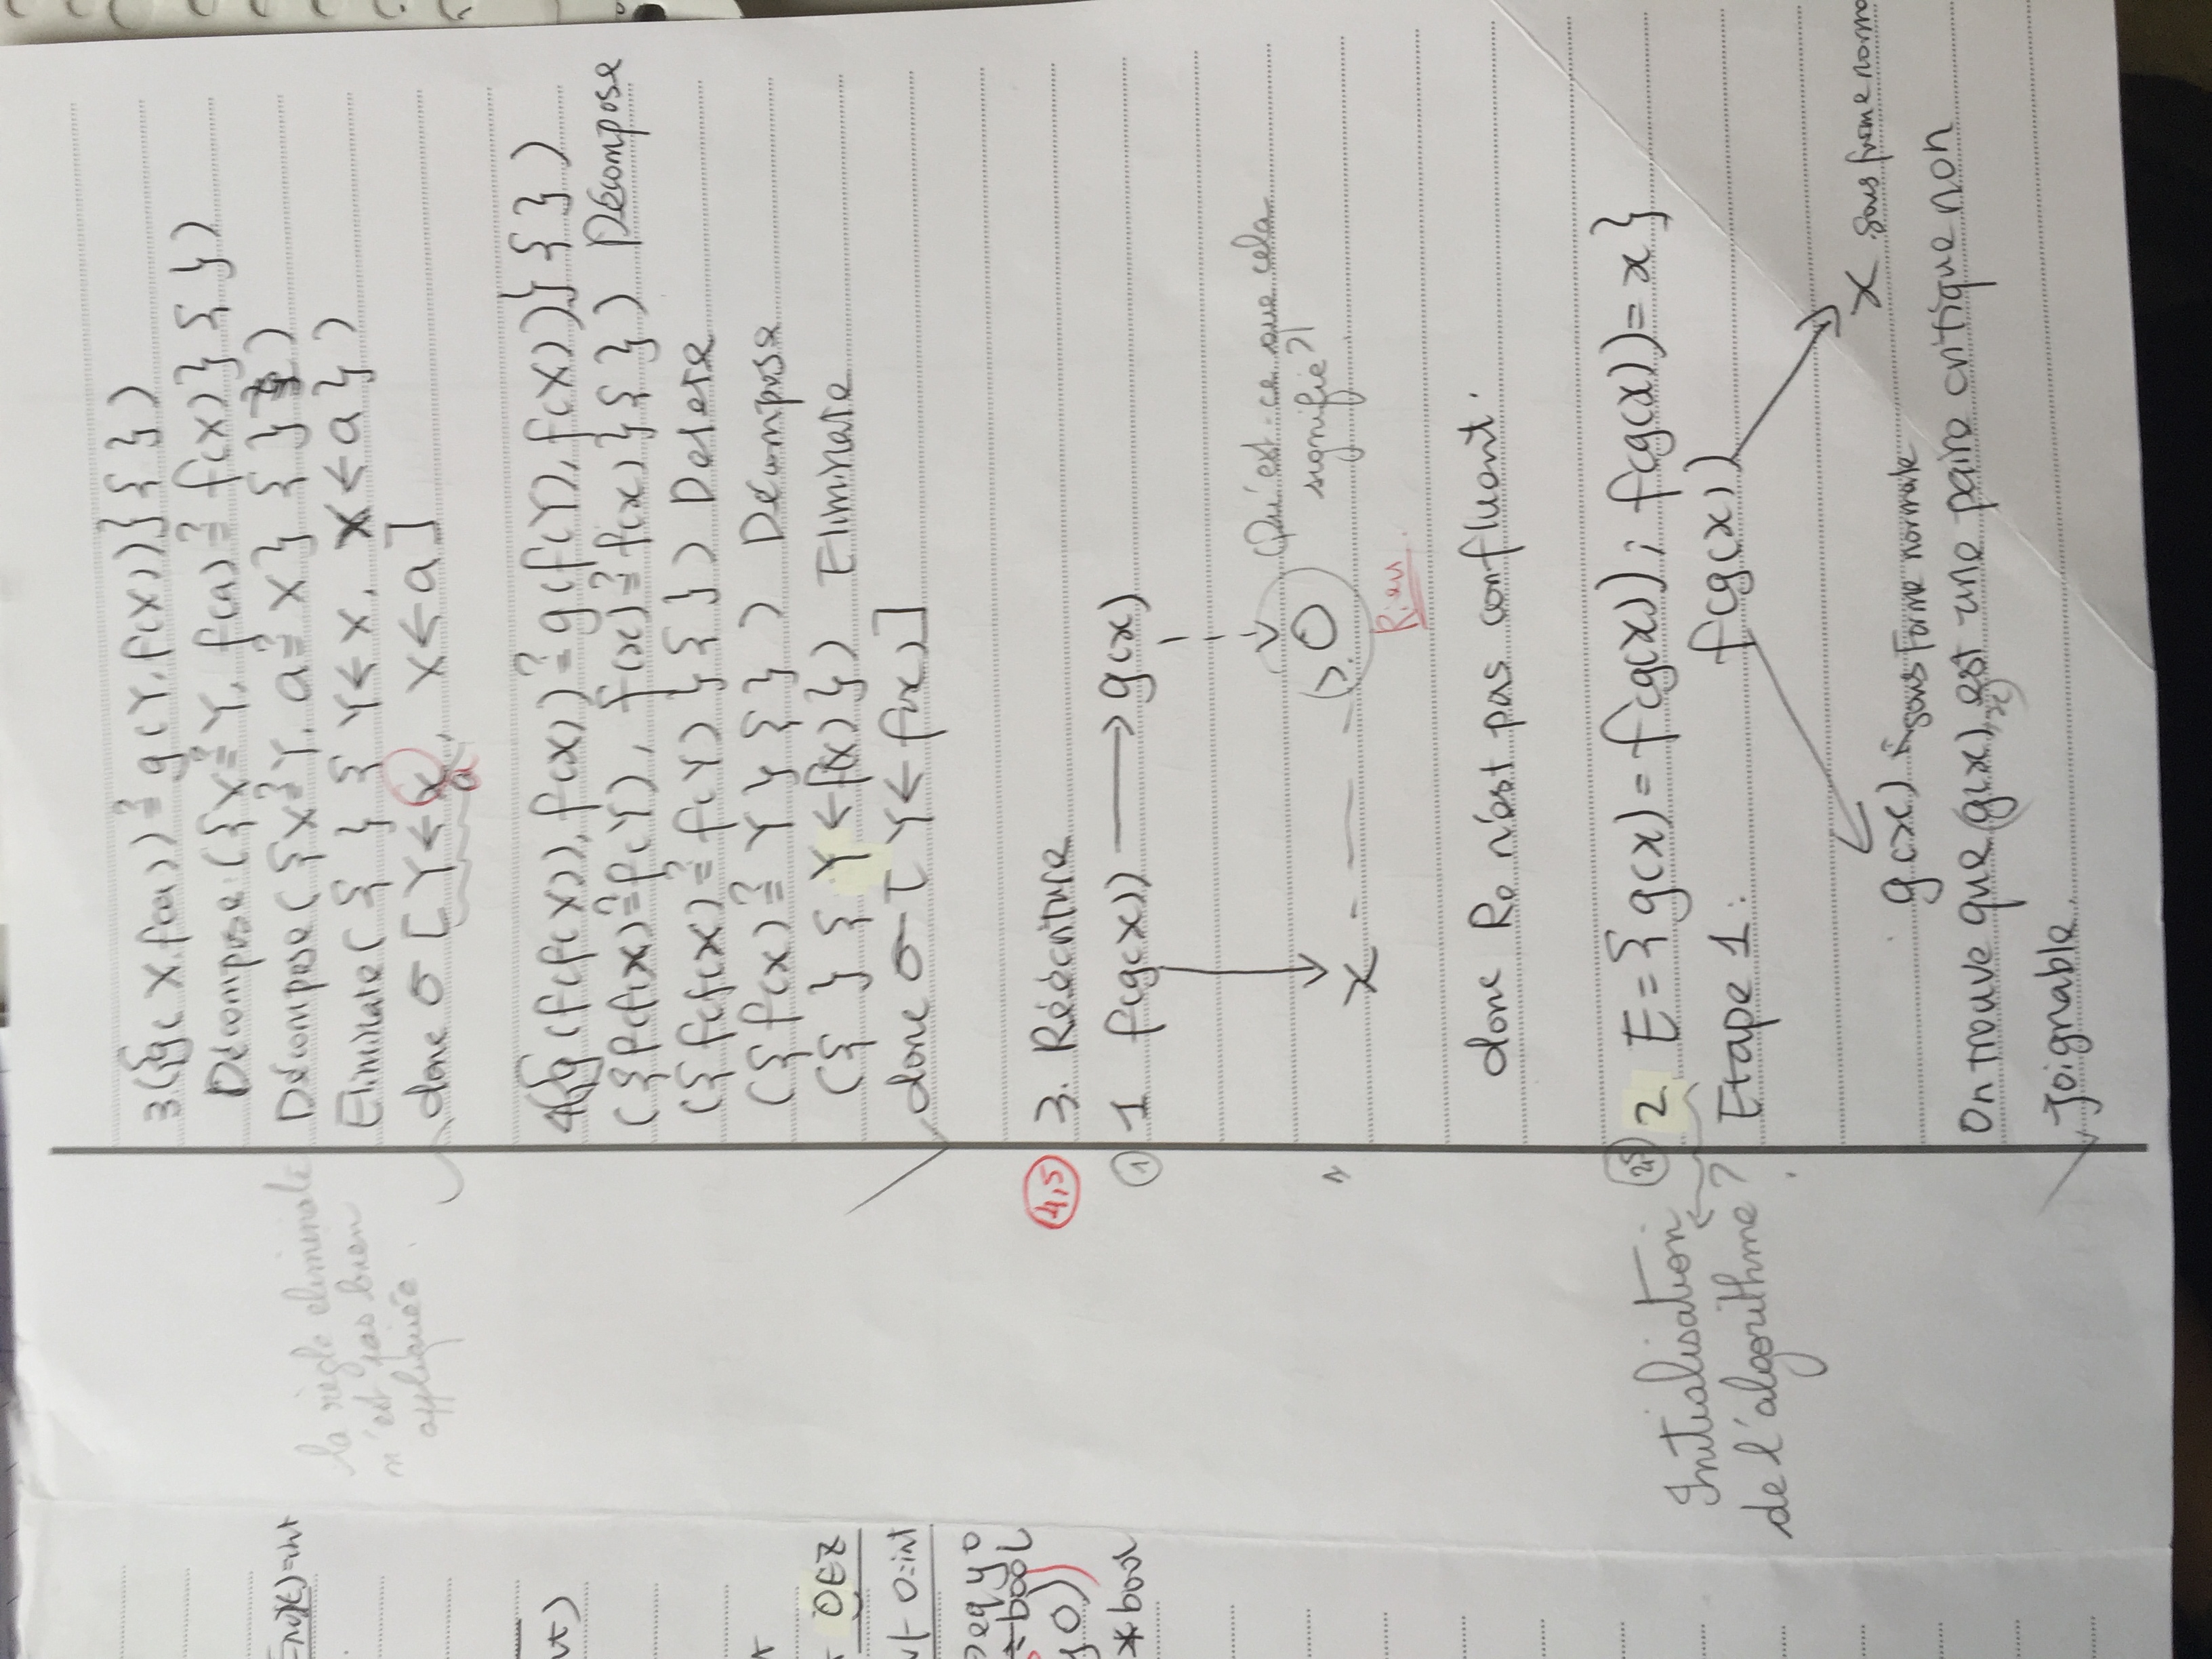 3.({g(X,f(a)) ≟ g(Y,f(X))}{ })
Décompose ({X ≟ Y, f(a) ≟ f(x)}{ })
Décompose ({X ≟ Y, a ≟ X}{ })
Eliminate ({ } { Y ← X, X ← a })
donc σ [ Y ← x, X ← a ]
a
la règle eliminate
n'est pas bien
appliquée.
4({g(f(f(X)), f(X)) ≟ g(f(Y), f(X))}{ })
({f(f(x) ≟ f(Y), f(x) ≟ f(x)}{ }) Décompose
({f(f(x) ≟ f(Y)}{ }) Delete
({f(x) ≟ Y}{ }) Décompose
({ } { Y ← f(X) }) Eliminate
donc σ [ Y ← f(x) ]
4,5 3. Réécriture
1 1 f(g(x)) → g(x)
1 x O
Qu'est-ce que cela
signifie?
Rien.
donc R0 n'est pas confluent.
2. E = {g(x) = f(g(x)); f(g(x)) = x}
Initialisation
de l'algorithme?
Etape 1: f(g(x))
x sous forme norma
g(x) sous Forme normale
On trouve que (g(x), x) est une paire critique non
joignable.
Env)(t)=int
0EZ
0:int
eq y 0
bool
y 0))
*bool